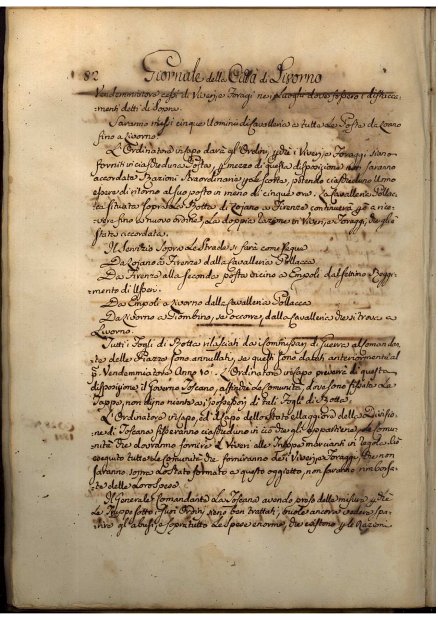 82 Giornale della Città di Livorno
Vendemmiatore essi di Viveri, e Foragi ne i luoghi dove fossero i distacca-
menti detti di Sopra.
Saranno messi cinque Uomini di Cavalleria a tutte le Poste da
fino a Livorno.
L'Ordinatore in Capo darà gli Ordini, che i Viveri, e Foraggi siano
forniti in ciascheduna Posta, mezzo di questa disposizione non saranno
accordate Razioni Straordinarie le Scorte, potendo ciascheduno Uomo
essere di ritorno al suo posto in meno di cinque ore. La Cavalleria Pollac-
ca situata sopra le Poste da a Firenze continuerà a rice-
vere fino a nuovo ordine, La doppia Razione in Viveri, e Foraggi, che gli è
stata accordata.
Il Servizio Sopra le Strade si farà come segue
Da a Firenze dalla Cavalleria Pollacca
Da Firenze alla seconda posta vicino a Empoli dal settimo Reggi-
mento di Usseri.
Da Empoli a Livorno dalla Cavalleria Pollacca
Da Livorno a Piombino, se occorre, dalla Cavalleria che si trova a
Livorno.
Tutti i Fogli di Rotta rilasciati da i Commissari di Guerra, al Comandan-
te delle Piazze sono annullati, se questi sono datati anteriormente al
Vendemmiatore Anno 10. L'Ordinatore in Capo preverrà di questa
disposizione il Governo Toscano, affinchè le Comunità, dove sono fissate le
Tappe, non diino niente a i possessori di tali Fogli di Rotta.
L'Ordinatore in Capo, ed il Capo dello Stato Maggiore della Divisio-
ne di Toscana fisseranno ciascheduno in ciò che gli appartiene, le Comu-
nità che dovranno fornire i Viveri alle Truppe marcianti in regola. In
seguito tutte le Comunità che forniranno dei Viveri, e Foraggi, che non
saranno sopra lo Stato formato a questo oggetto, non saranno rimborsa-
te delle Loro Spese.
Il Generale Comandante La Toscana avendo preso delle misure
le Truppe sotto i suoi Ordini siano ben trattate, vuole ancora vedere spa-
rire gli abusi, e sopratutto le Spese enormi, che esistono le Razioni